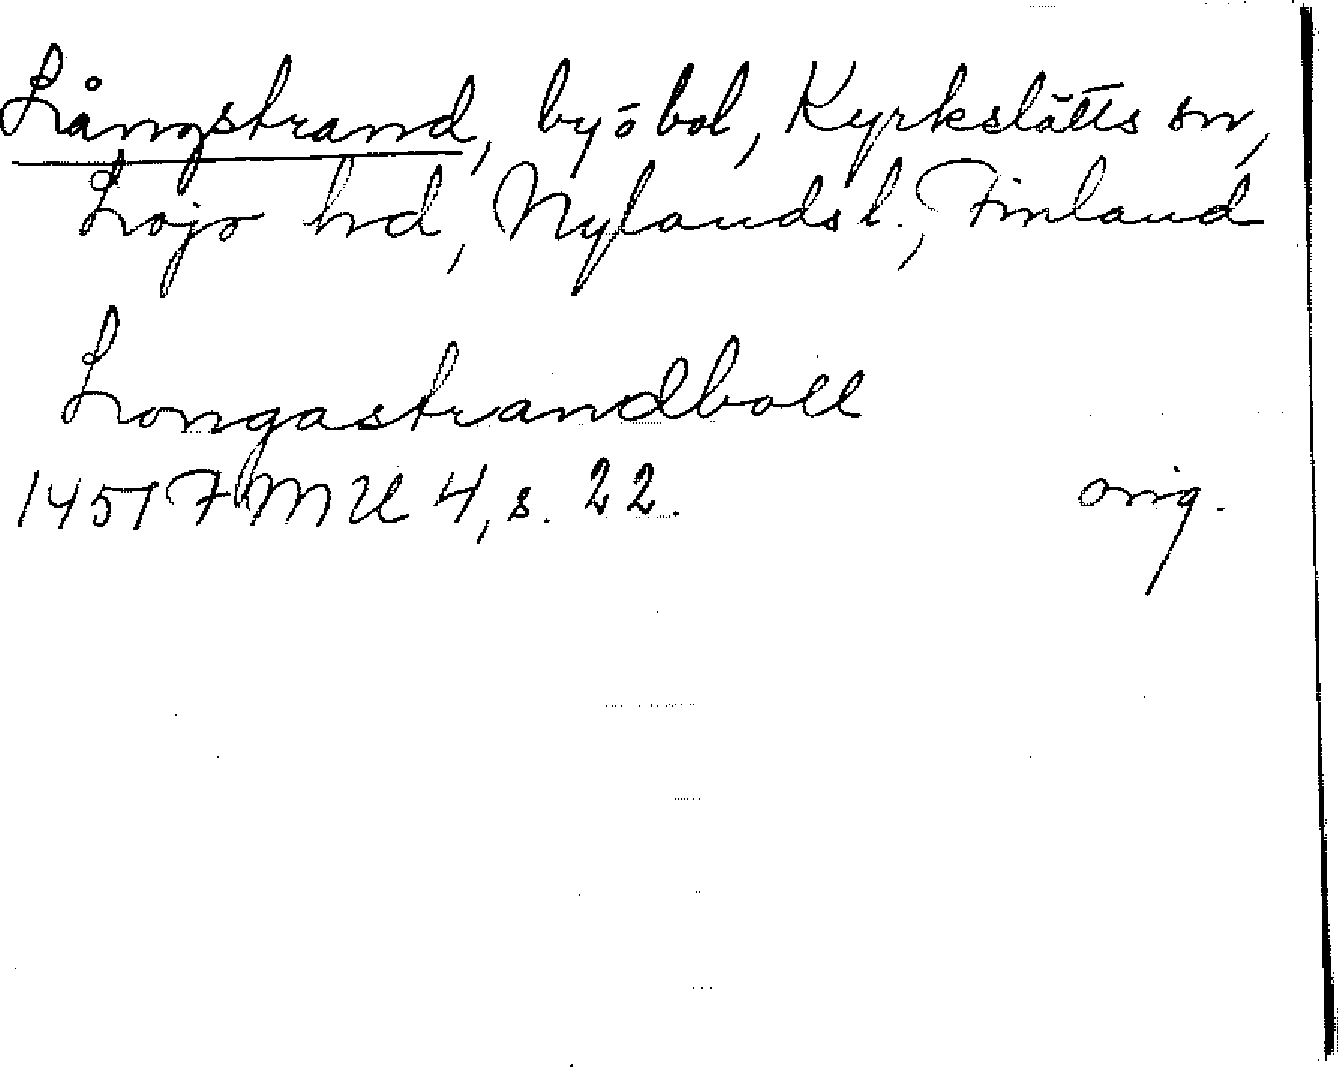 Långstrand, by o bol, Kyrkslätts sn,
Lojo hd, Nylands l., Finland
Longastrandboll
1451 FMU 4, s. 22. orig.